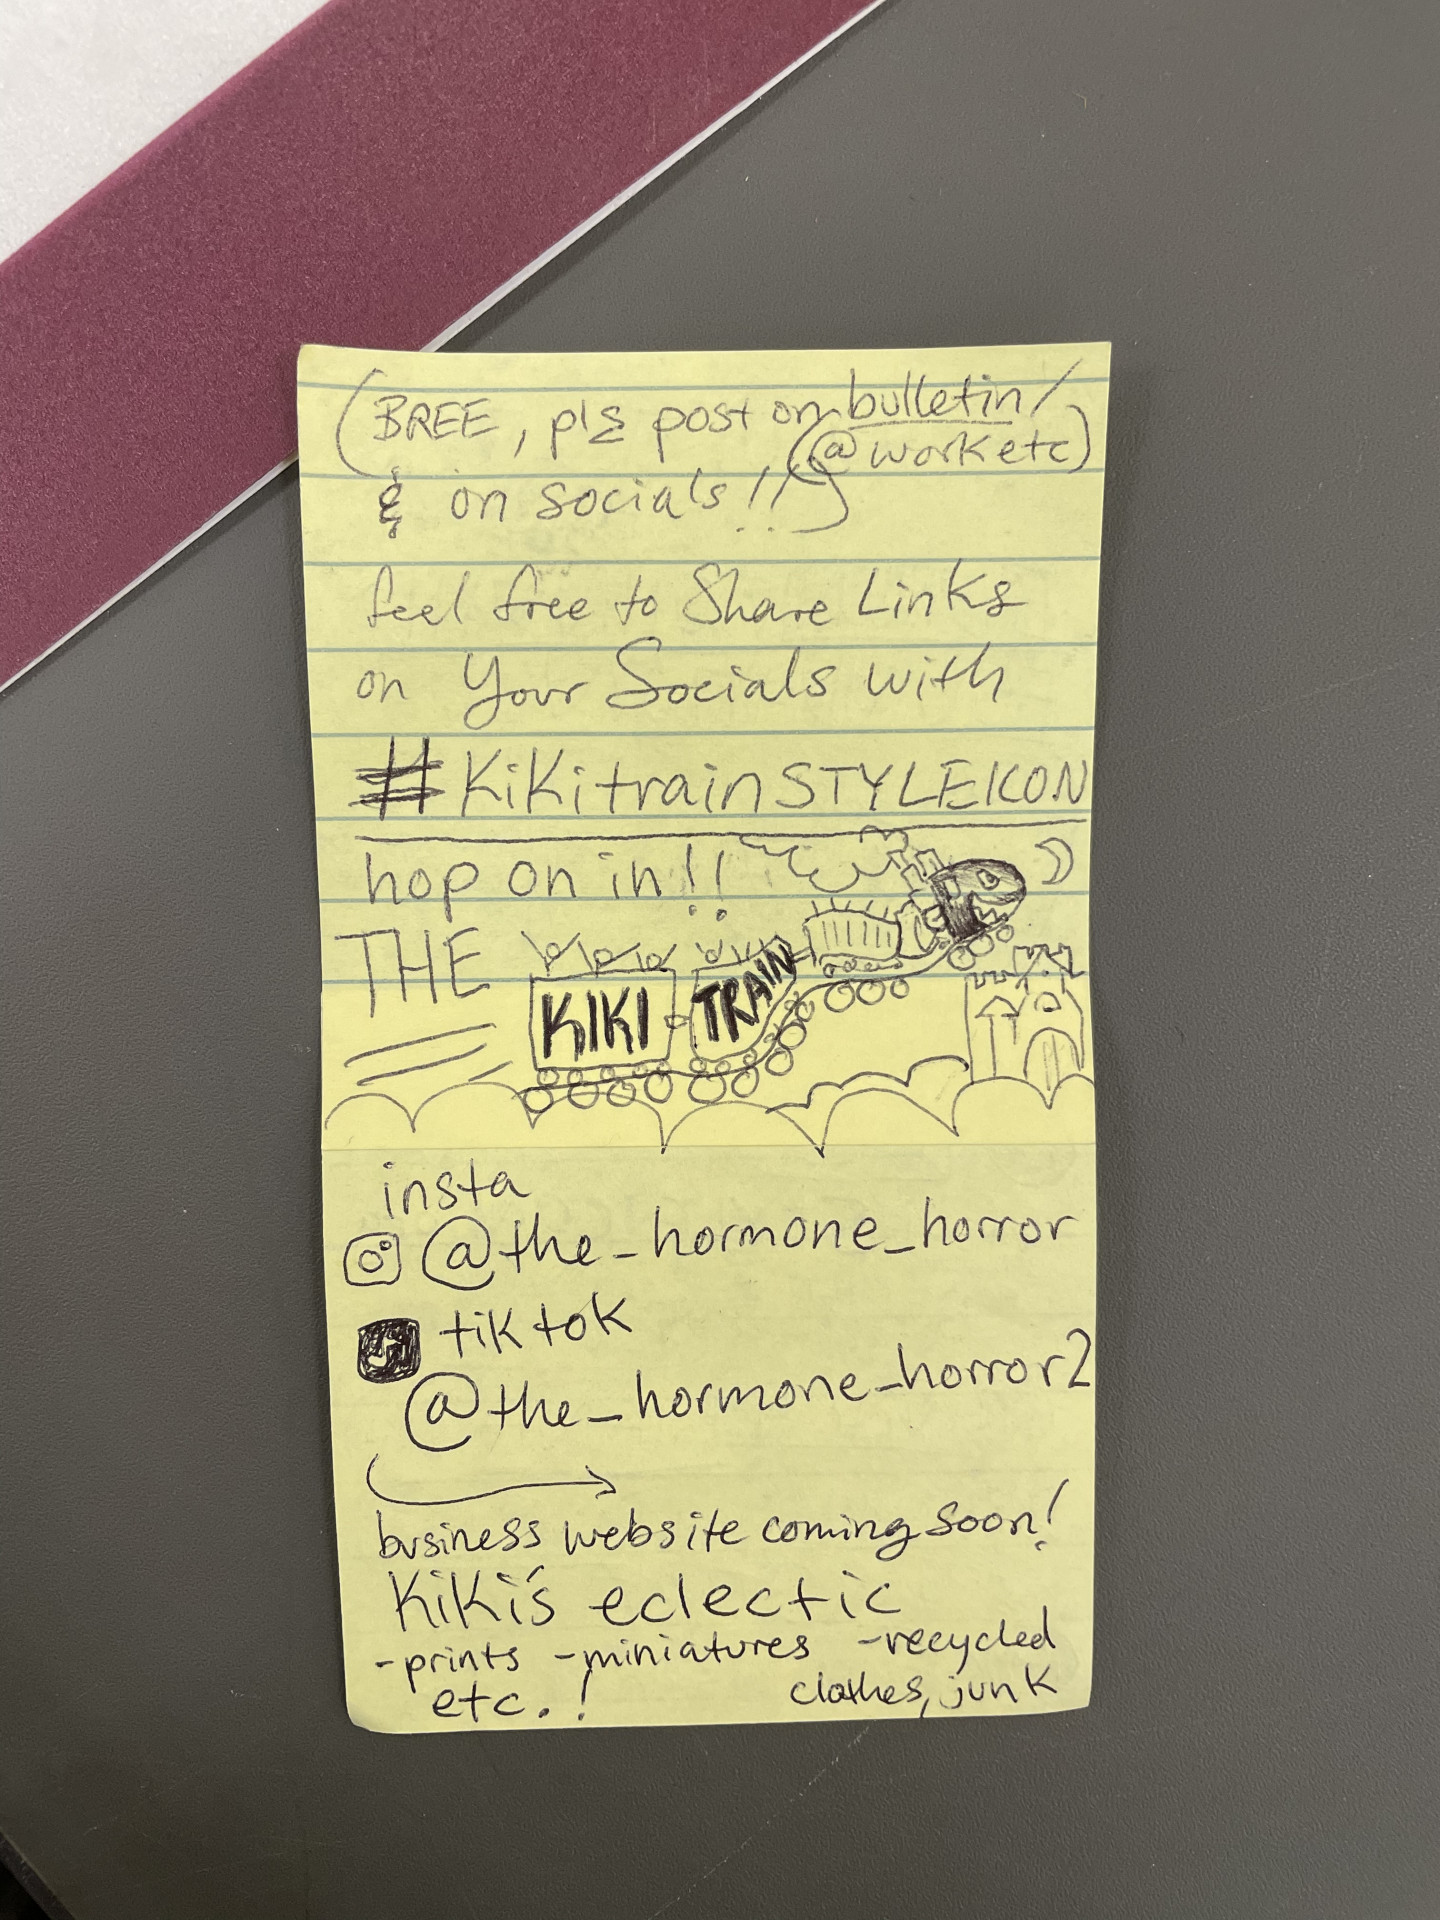 (BREE, pls post on bulletin/
(@work etc)
& on socials!!)
feel free to Share Links
on Your Socials with
#KiKitrainSTYLEIKON
hop on in!!
THE KIKI TRAIN
insta
@the_hormone_horror
tiktok
@the_hormone_horror2
business website coming soon!
KiKi's eclectic
-prints -miniatures -recycled
etc.! clothes, junk